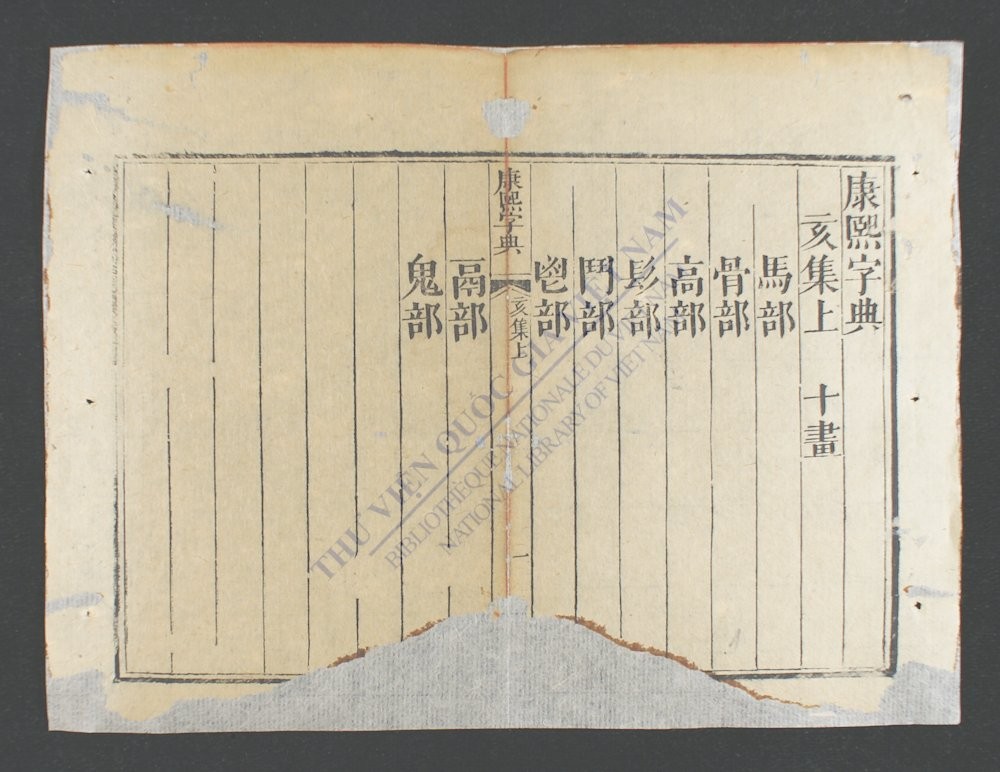 康熙字典
亥集上 十畫
馬部
骨部
高部
髟部
鬥部
鬯部
康熙字典 亥集上 一
鬲部
鬼部
THƯ VIỆN QUỐC GIA VIỆT NAM
BIBLIOTHÈQUE NATIONALE DU VIETNAM
NATIONAL LIBRARY OF VIETNAM